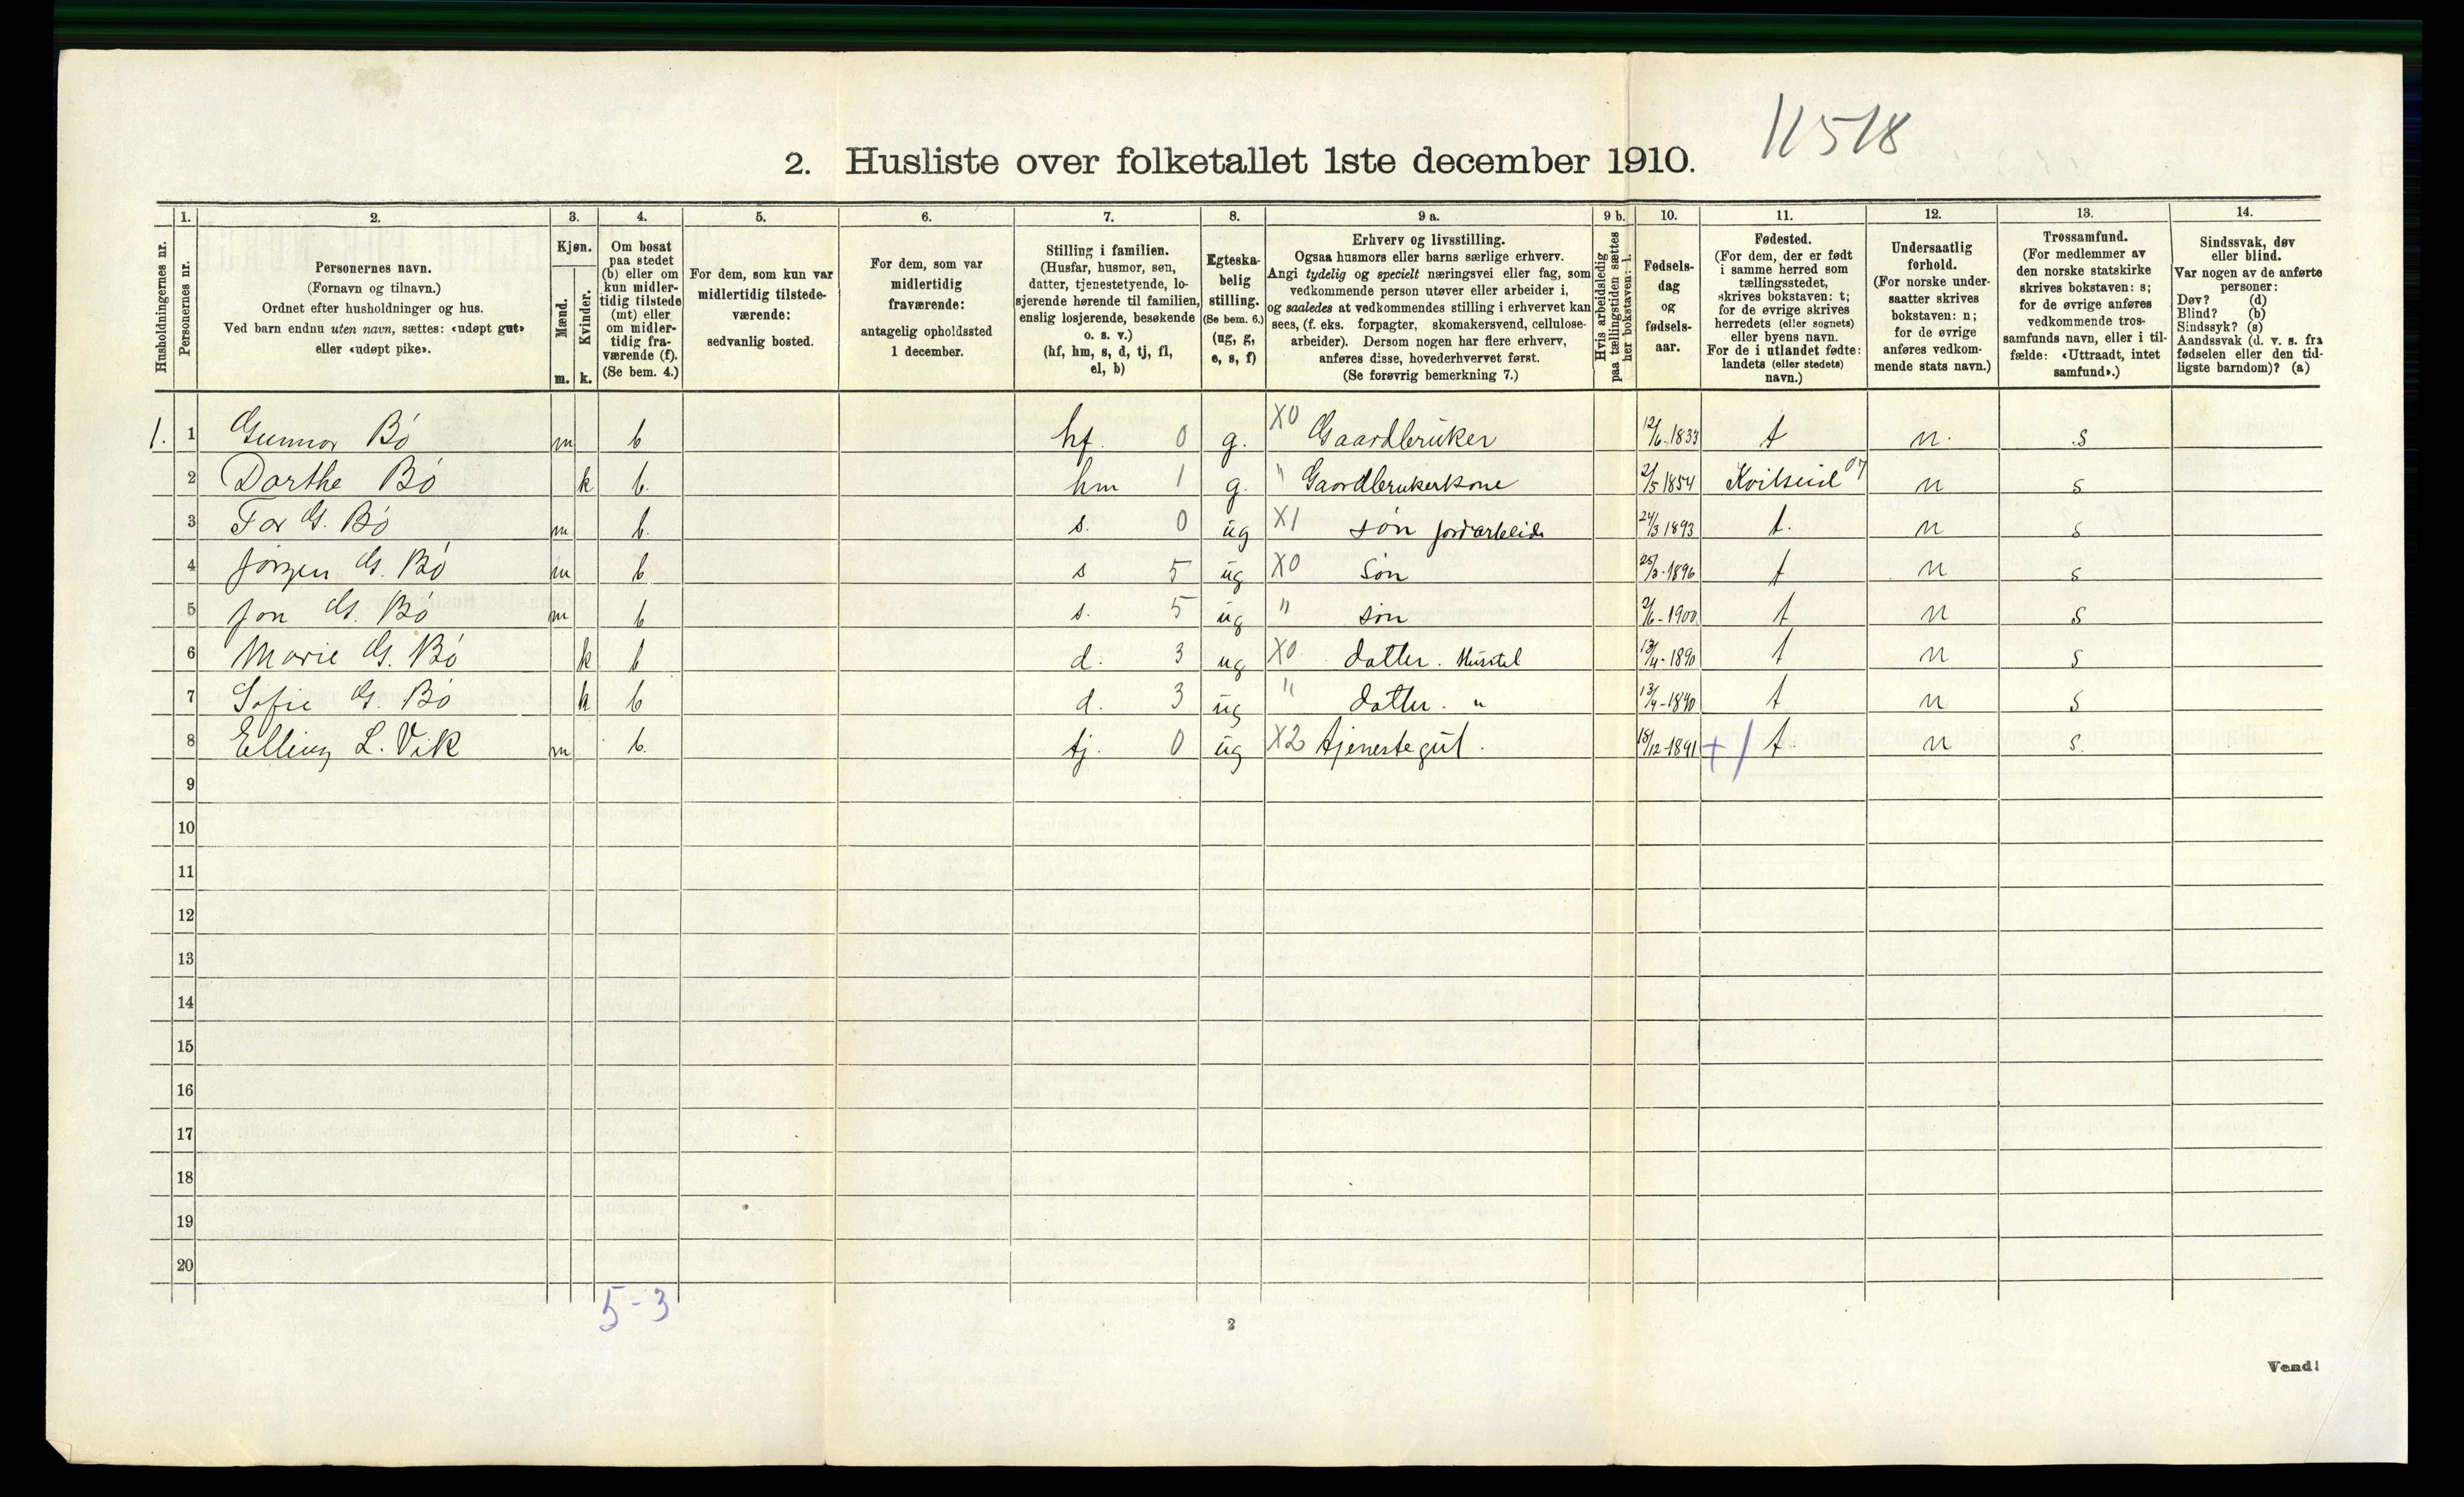 11518
2. Husliste over folketallet 1ste december 1910.
Husholdningernes nr.
1.
Personernes nr.
2.
Personernes navn.
(Fornavn og tilnavn.)
Ordnet efter husholdninger og hus.
Ved barn endnu uten navn, sættes: «udøpt gut»
eller «udøpt pike».
3.
Kjøn.
Mænd.
Kvinder.
m. k.
4.
Om bosat
paa stedet
(b) eller om
kun midler-
tidig tilstede
(mt) eller
om midler-
tidig fra-
værende (f).
(Se bem. 4.)
5.
For dem, som kun var
midlertidig tilstede-
værende:
sedvanlig bosted.
6.
For dem, som var
midlertidig
fraværende:
antagelig opholdssted
1 december.
7.
Stilling i familien.
(Husfar, husmor, søn,
datter, tjenestetyende, lo-
sjerende hørende til familien,
enslig losjerende, besøkende
o. s. v.)
(hf, hm, s, d, tj, fl,
el, b)
8.
Egteska-
belig
stilling.
(Se bem. 6.)
(ug, g,
e, s, f)
9 a.
Erhverv og livsstilling.
Ogsaa husmors eller barns særlige erhverv.
Angi tydelig og specielt næringsvei eller fag, som
vedkommende person utøver eller arbeider i,
og saaledes at vedkommendes stilling i erhvervet kan
sees, (f. eks. forpagter, skomakersvend, cellulose-
arbeider). Dersom nogen har flere erhverv,
anføres disse, hovederhvervet først.
(Se forøvrig bemerkning 7.)
9 b.
Hvis arbeidsledig
paa tællingstiden sættes
her bokstaven: l.
10.
Fødsels-
dag
og
fødsels-
aar.
11.
Fødested.
(For dem, der er født
i samme herred som
tællingsstedet,
skrives bokstaven: t;
for de øvrige skrives
herredets (eller sognets)
eller byens navn.
For de i utlandet fødte:
landets (eller stedets)
navn.)
12.
Undersaatlig
forhold.
(For norske under-
saatter skrives
bokstaven: n;
for de øvrige
anføres vedkom-
mende stats navn.)
13.
Trossamfund.
(For medlemmer av
den norske statskirke
skrives bokstaven: s;
for de øvrige anføres
vedkommende tros-
samfunds navn, eller i til-
fælde: «Uttraadt, intet
samfund».)
14.
Sindssvak, døv
eller blind.
Var nogen av de anførte
personer:
Døv? (d)
Blind? (b)
Sindssyk? (s)
Aandssvak (d. v. s. fra
fødselen eller den tid-
ligste barndom)? (a)
1. 1 Gunnar Bö m b hf. 0 g. X0 Gaardbruker 12/6-1833 t n. s
2 Dorthe Bö k b. hm 1 g. " Gaardbrukerkone 2/5 1854 Kvitseid 07 n s
3 Tor G. Bö m b. s. 0 ug X1 søn jordarbeide 24/3 1893 t. n s
4 Jörgen G. Bö m b s 5 ug X0 Søn 25/3-1896 t n s
5 Jon G. Bö m b s. 5 ug " søn 2/6-1900 t n s
6 Marie G. Bö k b d. 3 ug X0 datter. Husstel 13/4-1890 t n s
7 Sofie G. Bö k b d. 3 ug " datter. " 13/4-1890 t n s
8 Elling L. Vik m b. tj. 0 ug X2 tjenestegut. 18/12-1891 + / t. n s.
9
10
11
12
13
14
15
16
17
18
19
20
5-3
2
Vend!